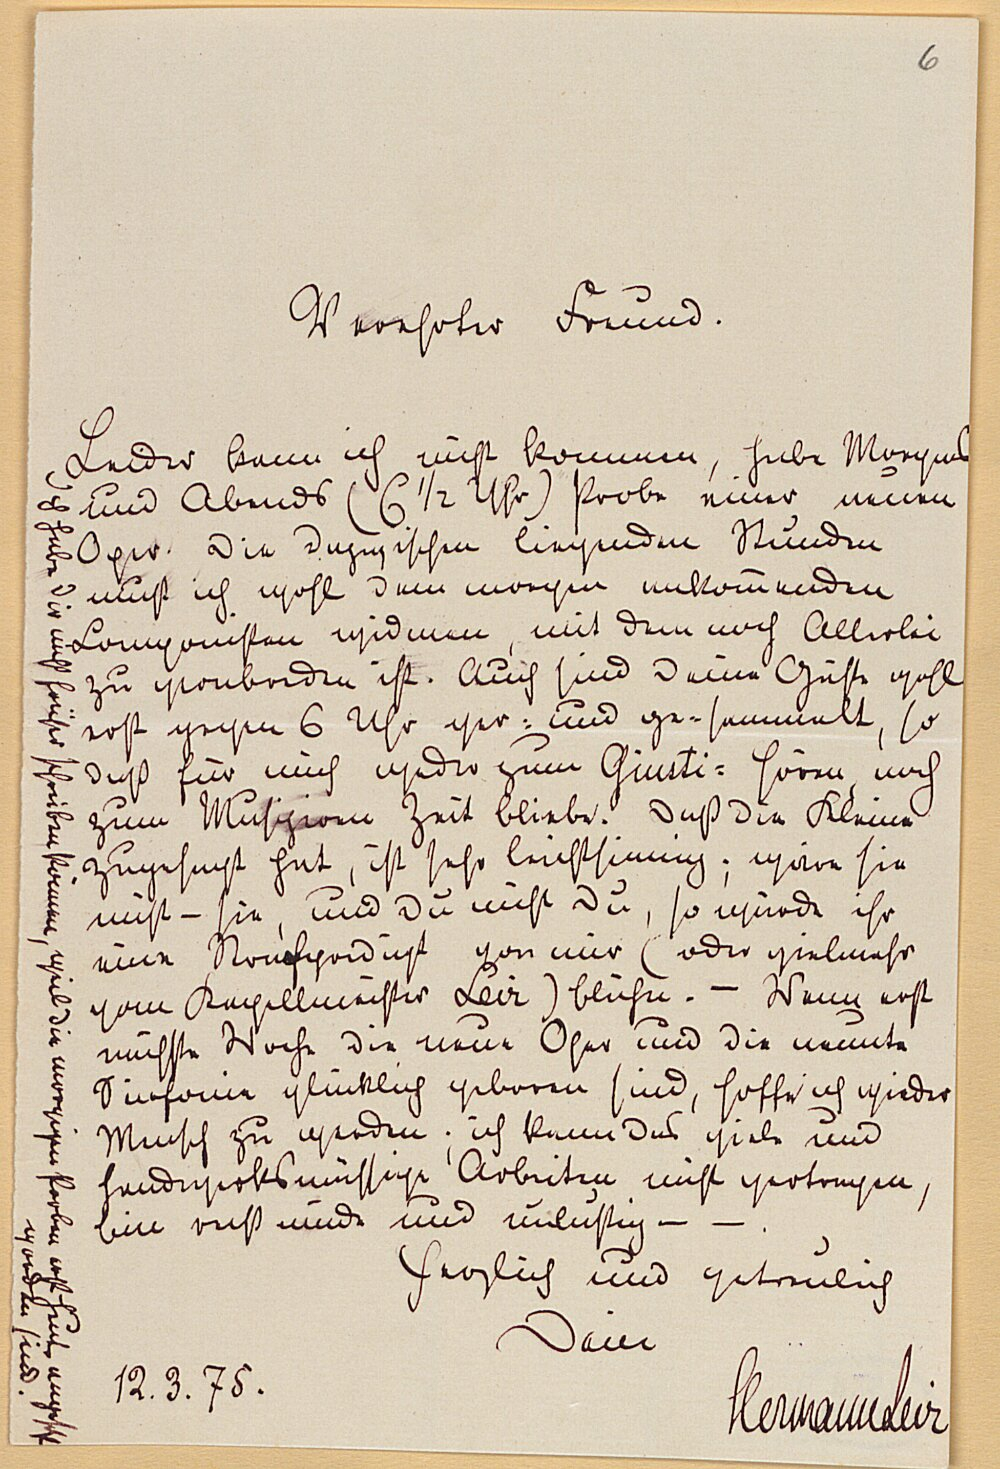 6
Verehrter Freund.
Leider kann ich nicht kommen, habe Morgens
und Abends (6 1/2 Uhr) Probe einer neuen
Oper. Die dazwischen liegenden Stunden
muß ich wohl dem morgen ankom̅enden
Componisten widmen, mit dem noch Allerlei
zu verabreden ist. Auch sind Deine Gäste wohl
erst gegen 6 Uhr ver= und ge-sammelt, so
daß für mich weder zum Giusti= hören, noch
zum Musiziren Zeit bliebe. Daß die Kleine
zugesagt hat, ist sehr leichtsinnig; wäre sie
nicht – sie, und Du nicht Du, so würde ihr
eine Strafpredigt von mir (oder vielmehr
vom Kapellmeister Levi) blühn. – Wenn erst
nächste Woche die neue Oper und die neunte
Sinfonie glücklich geboren sind, hoffe ich wieder
Mensch zu werden; ich kann das viele und
handwerksmässige Arbeiten nicht vertragen,
bin recht müde und unlustig – – .
Herzlich und getreulich
Dein
Hermann Levi
12.3.75.
Ich habe Dir nicht früher schreiben können, weil die morgigen Proben erst heute angesetzt
worden sind.